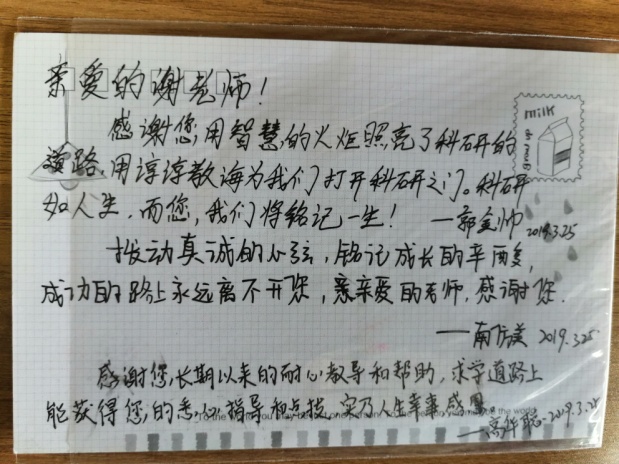 亲爱的谢老师!
milk
grow up
感谢您,用智慧的火炬照亮了科研的
道路,用谆谆教诲为我们打开科研之门。科研
如人生,而您,我们将铭记一生! —郭金帅 2019.3.25
拨动真诚的心弦,铭记成长的辛酸,
成功的路上永远离不开您,亲亲爱的老师,感谢您.
——南 美 2019.3.25
感谢您,长期以来的耐心教导和帮助,求学道路上
能获得您的悉心指导和点拨,实乃人生幸事感恩。
the world
——高 聪 2019.3.25